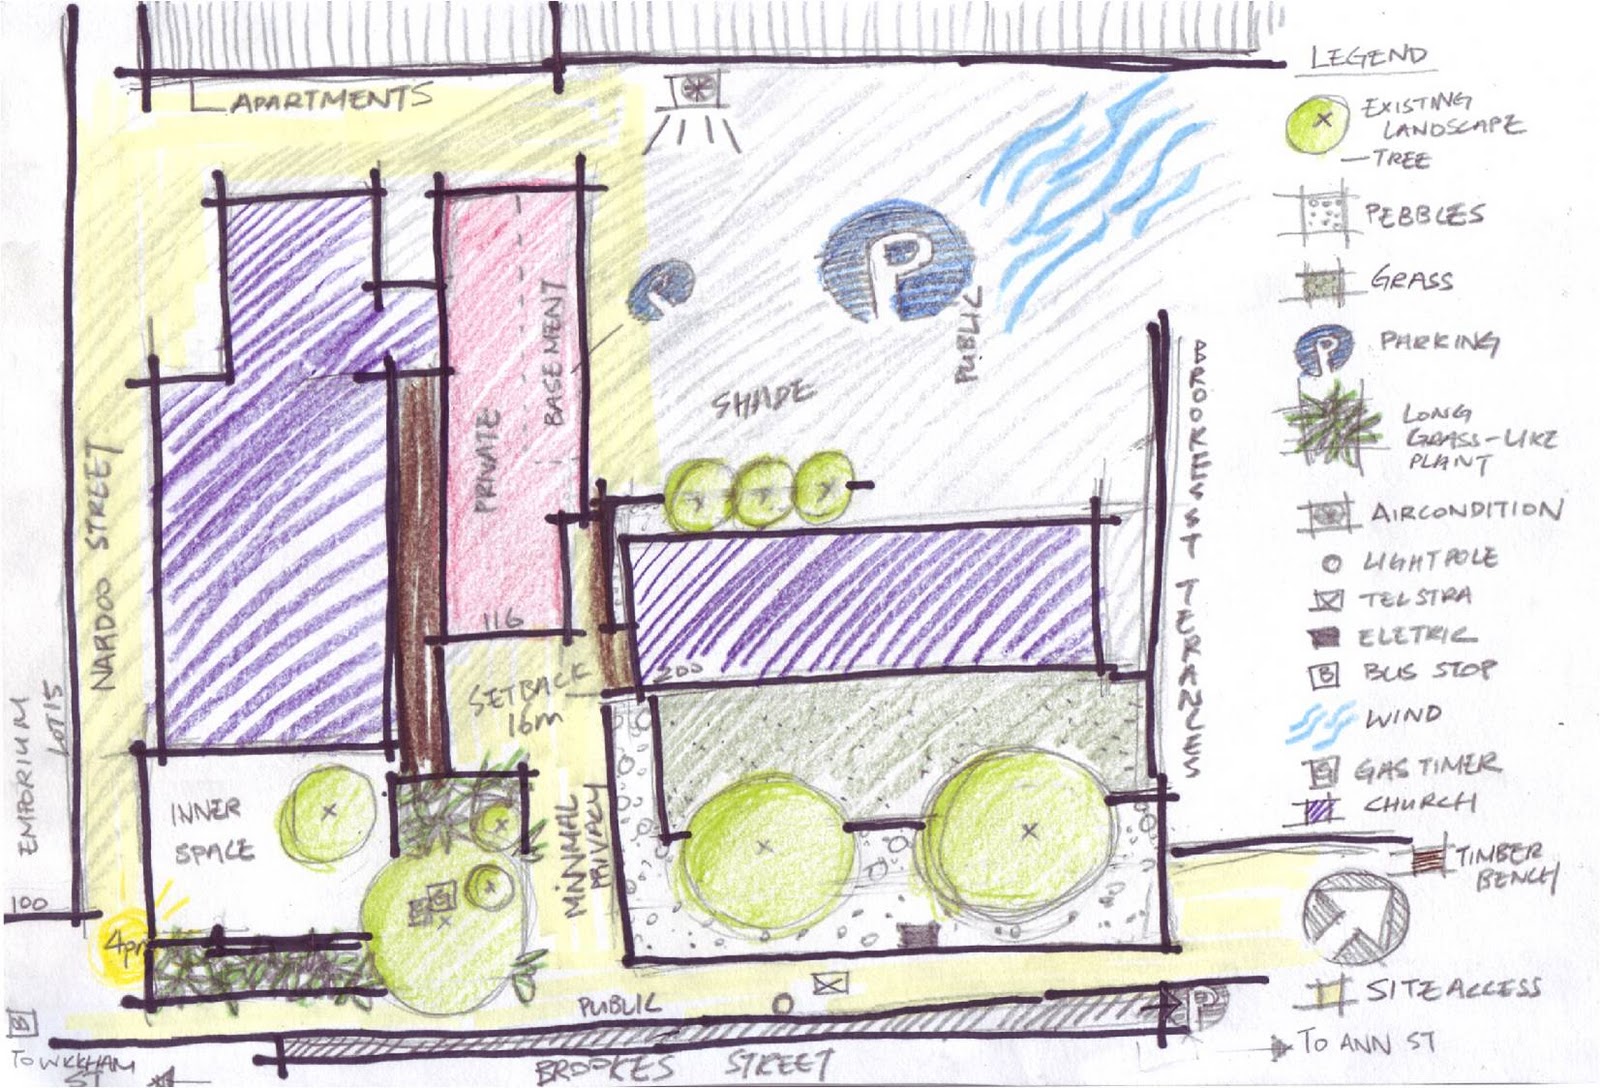 APARTMENTS
NARDOO STREET
EMPORIUM
LOT 15
100
PRIVATE
BASEMENT
116
SETBACK
16m
MINMAL
PRIVACY
INNER
SPACE
4pm
P
P
PUBLIC
SHADE
200
BROOKES ST TERANCES
PUBLIC
BROOKES STREET
B
TO WKKHAM
ST
P
TO ANN ST
LEGEND
EXISTING
LANDSCAPE
- TREE
PEBBLES
GRASS
P
PARKING
LONG
GRASS-LIKE
PLANT
AIRCONDITION
LIGHTPOLE
TELSTRA
ELETRIC
B
BUS STOP
WIND
G
GAS TIMER
CHURCH
TIMBER
BENCH
SITE ACCESS